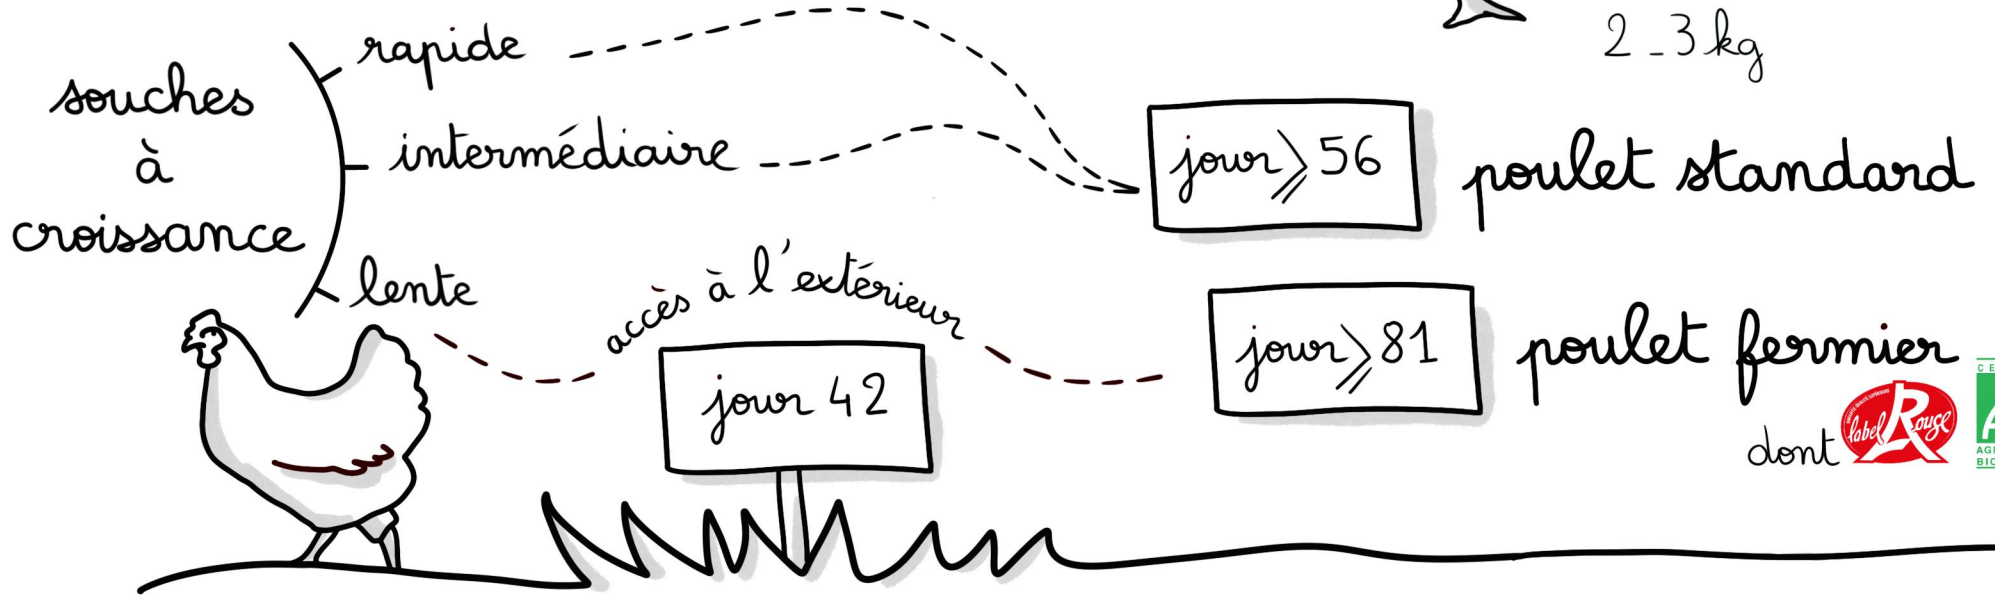 2-3 kg
souches
à
croissance
rapide
intermédiaire
lente
jour ⩾ 56
poulet standard
accès à l'extérieur
jour 42
jour ⩾ 81
poulet fermier
dont
label Rouge